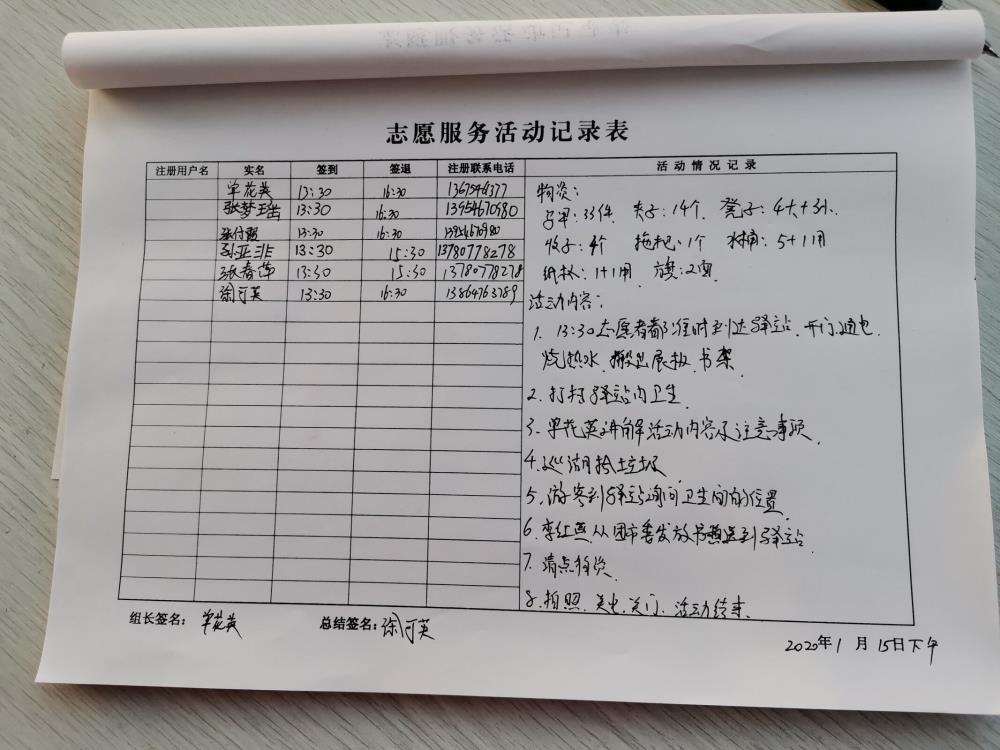 志愿服务活动记录表
注册用户名 实名 签到 签退 注册联系电话 活动情况记录
单花英 13:30 16:30
张梦 13:30 16:30 13954670980
张付 13:30 16:30
亚非 13:30 15:30 13780778278
张春萍 13:30 15:30 13780778278
徐可英 13:30 16:30 13864763789
物资:
马甲:33件 夹子:14个 凳子:4大+3小
牧子:4个 拖把:1个 水桶:5+1用
纸杯:1+1用 旗:2面
活动内容:
1. 13:30志愿者都准时到达驿站.开门.通电.
烧热水.搬出展板.书架
2. 打扫驿站内卫生.
3. 单花英讲解活动内容及注意事项.
4. 巡湖捡垃圾
5. 游客到驿站询问卫生间的位置
6. 李红燕从团市委发放书 到驿站.
7. 清点物资
8. 拍照.关电.关门.活动结束.
组长签名: 单花英 总结签名: 徐可英
2020年1月15日下午